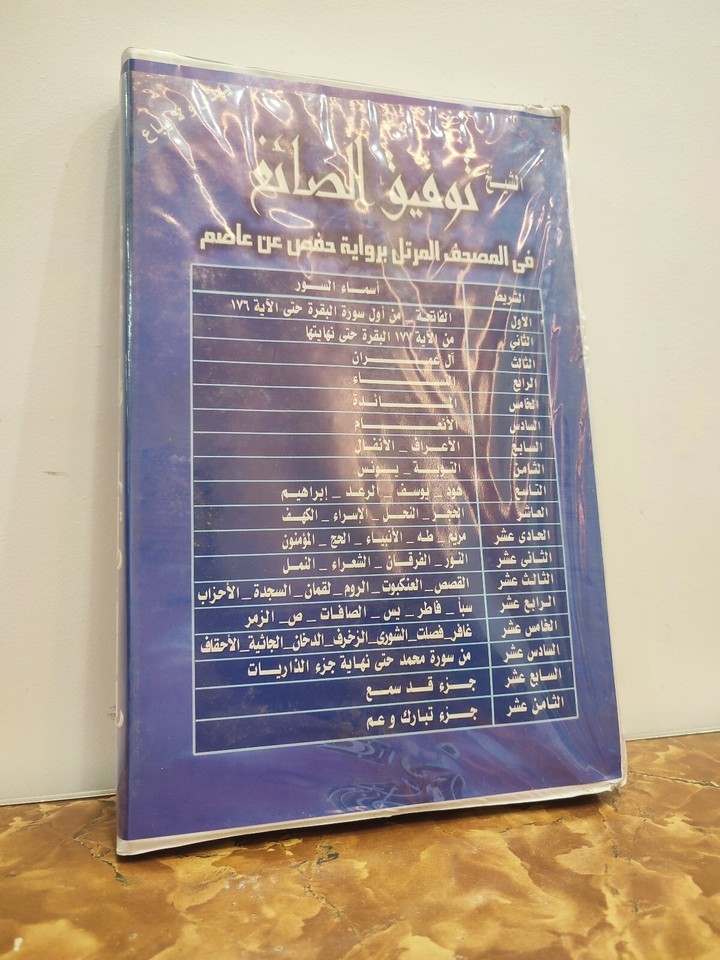 الشيخ توفيق الصائغ
فى المصحف المرتل برواية حفص عن عاصم
الشريط أسماء السور
الأول الفاتحة _ من أول سورة البقرة حتى الآية ١٧٦
الثاني من الآية ١٧٧ البقرة حتى نهايتها
الثالث آل عمران
الرابع النساء
الخامس المائدة
السادس الأنعام
السابع الأعراف _ الأنفال
الثامن التوبة _ يونس
التاسع هود _ يوسف _ الرعد _ إبراهيم
العاشر الحجر _ النحل _ الإسراء _ الكهف
الحادى عشر مريم _ طه _ الأنبياء _ الحج _ المؤمنون
الثانى عشر النور _ الفرقان _ الشعراء _ النمل
الثالث عشر القصص _ العنكبوت _ الروم _ لقمان _ السجدة _ الأحزاب
الرابع عشر سبأ _ فاطر _ يس _ الصافات _ ص _ الزمر
الخامس عشر غافر_ فصلت_ الشورى_ الزخرف_ الدخان_ الجاثية_ الأحقاف
السادس عشر من سورة محمد حتى نهاية جزء الذاريات
السابع عشر جزء قد سمع
الثامن عشر جزء تبارك وعم